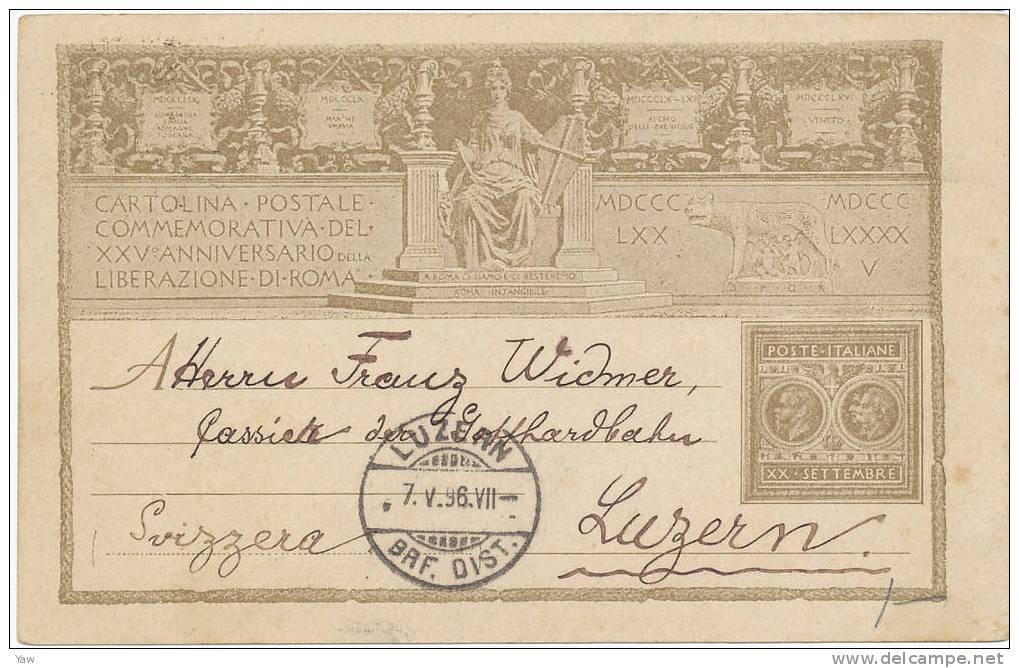 MDCCCLIX
LOMBARDIA
EMILIA
ROMAGNE
TOSCANA
MDCCCLX
MARCHE
UMBRIA
MDCCCLX-LXI
REGNO
DELLE DUE SICILIE
MDCCCLXVI
VENETO
CARTOLINA · POSTALE ·
COMMEMORATIVA · DEL ·
XXVº ANNIVERSARIO DELLA
LIBERAZIONE · DI · ROMA
A ROMA CI SIAMO E CI RESTEREMO
ROMA INTANGIBILE
MDCCC
LXX
MDCCC
LXXXX
V
S P Q R
POSTE · ITALIANE
XX · SETTEMBRE
A Herrn Franz Widmer,
Cassier der Gotthardbahn
Luzern.
Svizzera
LUZERN
7.V.96.VII
BRF. DIST.
Yaw
www.delcampe.net